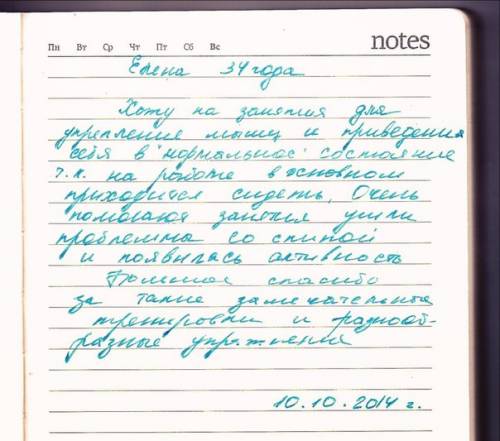 Пн Вт Ср Чт Пт Сб Вс notes
Елена 34 года
Хожу на занятия для
укрепление мышц и приведения
себя в "нормальное" состояние
т.к. на работе в основном
приходится сидеть. Очень
помогают занятия ушли
проблемма со спиной
и появилась активность
Большое спасибо
за такие замечательные
тренировки и разнооб-
разные упражнения
10.10.2014 г.